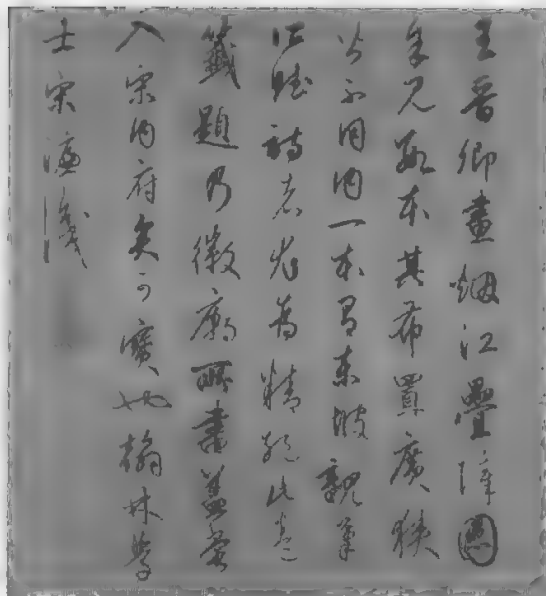 王晋卿畫烟江疊嶂圖
余見數本其布置廣狹
皆不同內一本有東坡親筆
所賦詩者尤為精絕此卷
籤題乃徽廟所書蓋嘗
入宋內府矣可寶也翰林學
士宋濂識